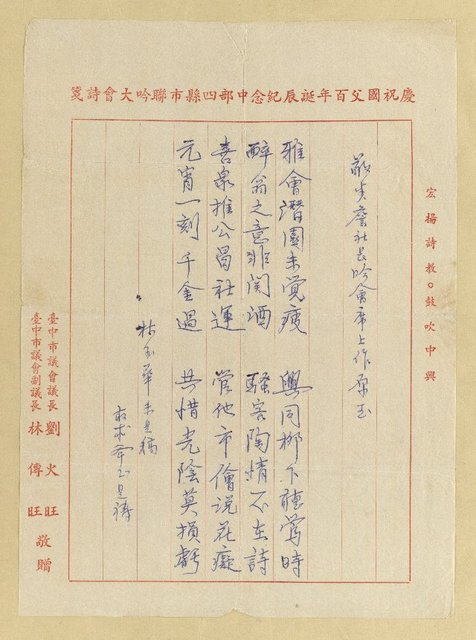 慶祝國父百年誕辰紀念中部四縣市聯吟大會詩箋
宏揚詩教。鼓吹中興
敬步詹社長吟會席上作原玉
雅會潛園未覺疲 興同柳下聽鶯時
醉翁之意非關酒 騷客陶情不在詩
喜衆推公昌社運 管他市儈説花癡
元宵一刻千金過 共惜光陰莫損虧
林玉華未是稿
敬求斧正是禱
臺中市議會議長 劉火旺
臺中市議會副議長 林傳旺 敬贈